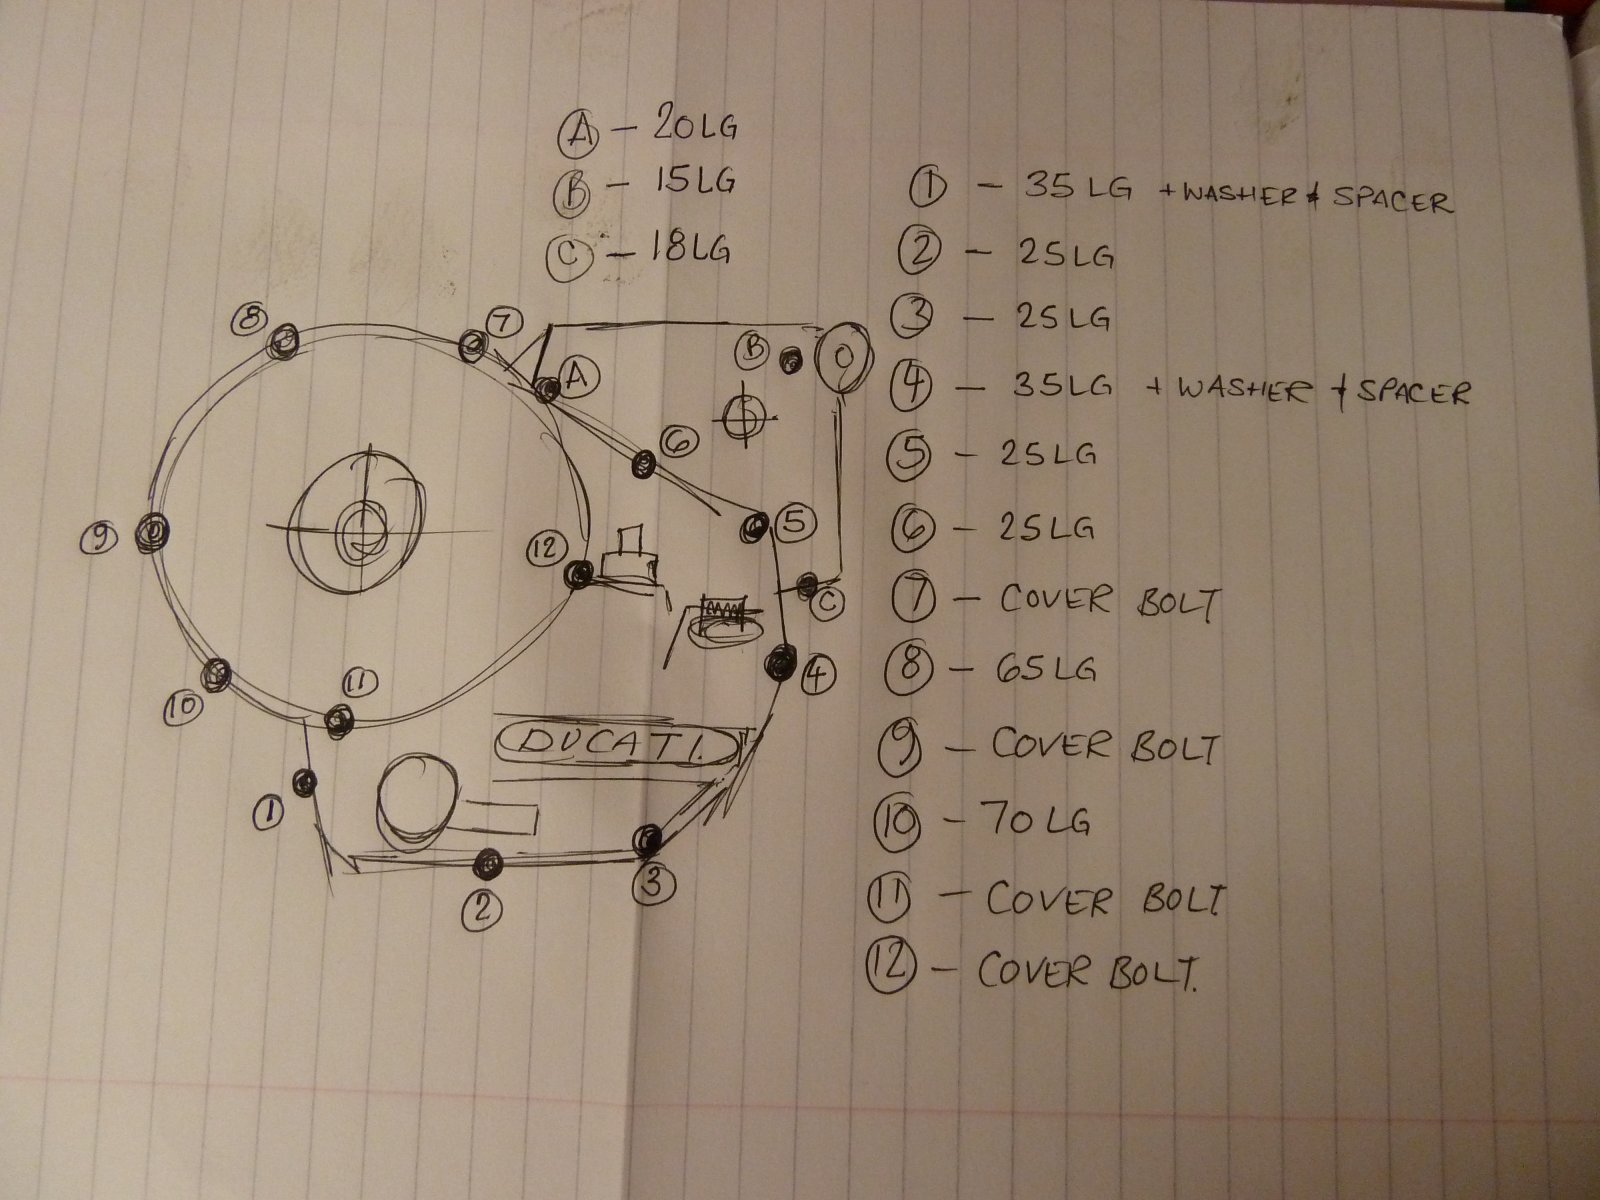 A - 20LG
B - 15LG
C - 18LG
1 - 35LG + WASHER & SPACER
2 - 25LG
3 - 25LG
4 - 35LG + WASHER & SPACER
5 - 25LG
6 - 25LG
7 - COVER BOLT
8 - 65LG
9 - COVER BOLT
10 - 70LG
11 - COVER BOLT
12 - COVER BOLT.
8
7
A
B
6
9
12
5
C
10
11
4
DUCATI.
1
2
3